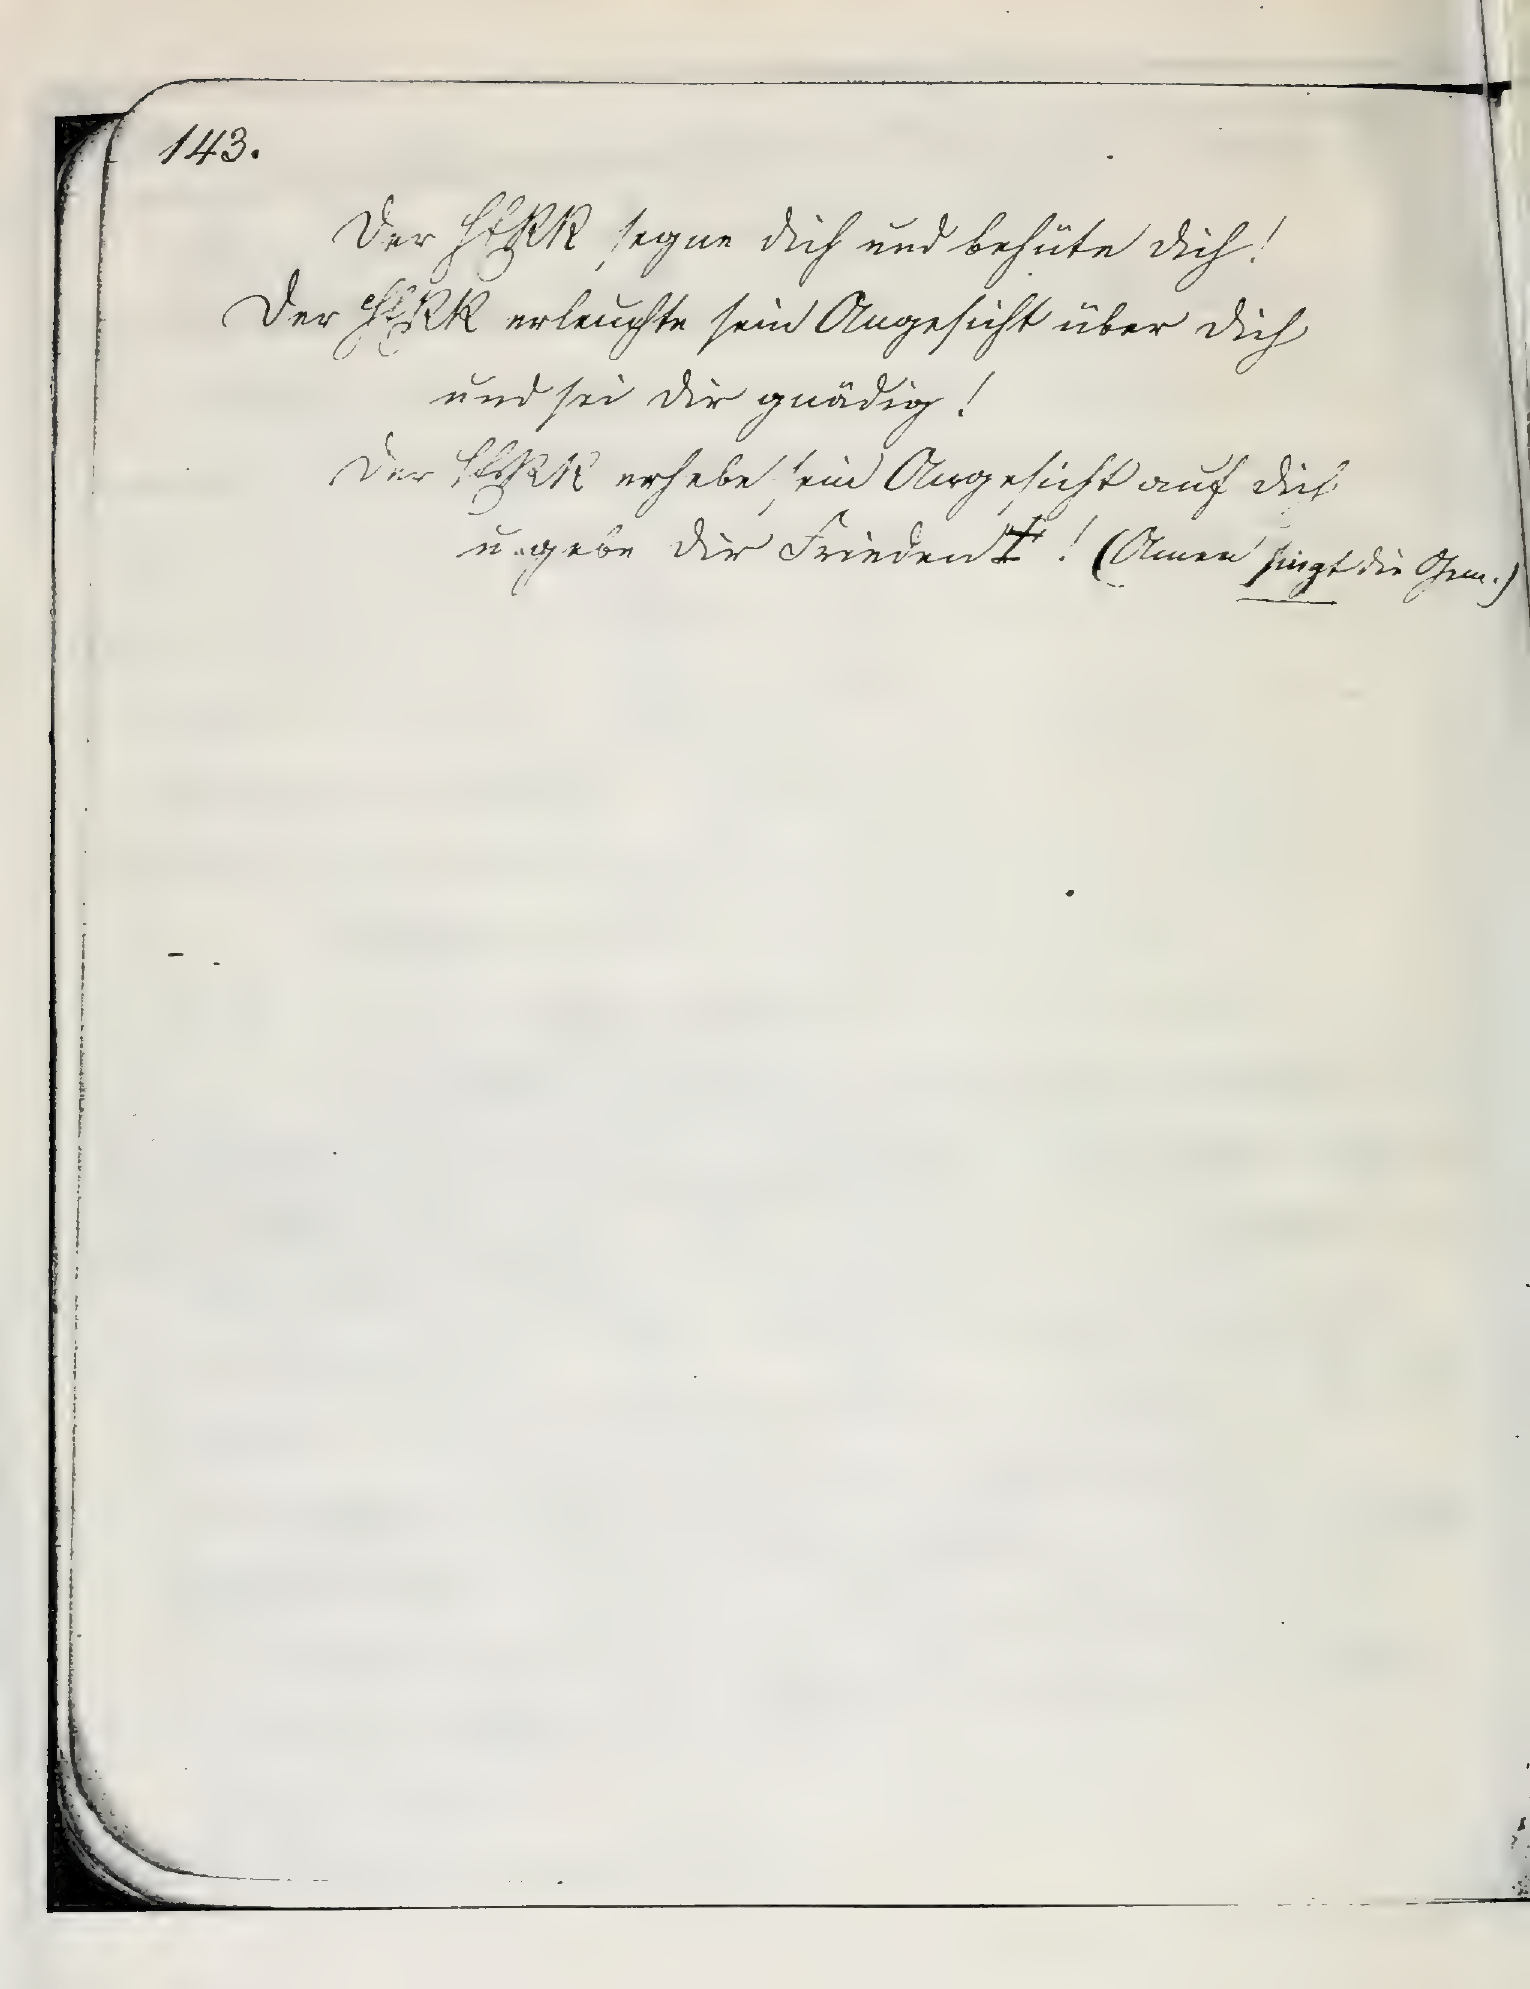 143.
Der HERR segne dich und behüte dich!
Der HERR erleuchte sein Angesicht über dich
und sei dir gnädig!
Der HERR erhebe sein Angesicht auf dich
u. gebe dir Frieden †! (Amen singt die Gem.)